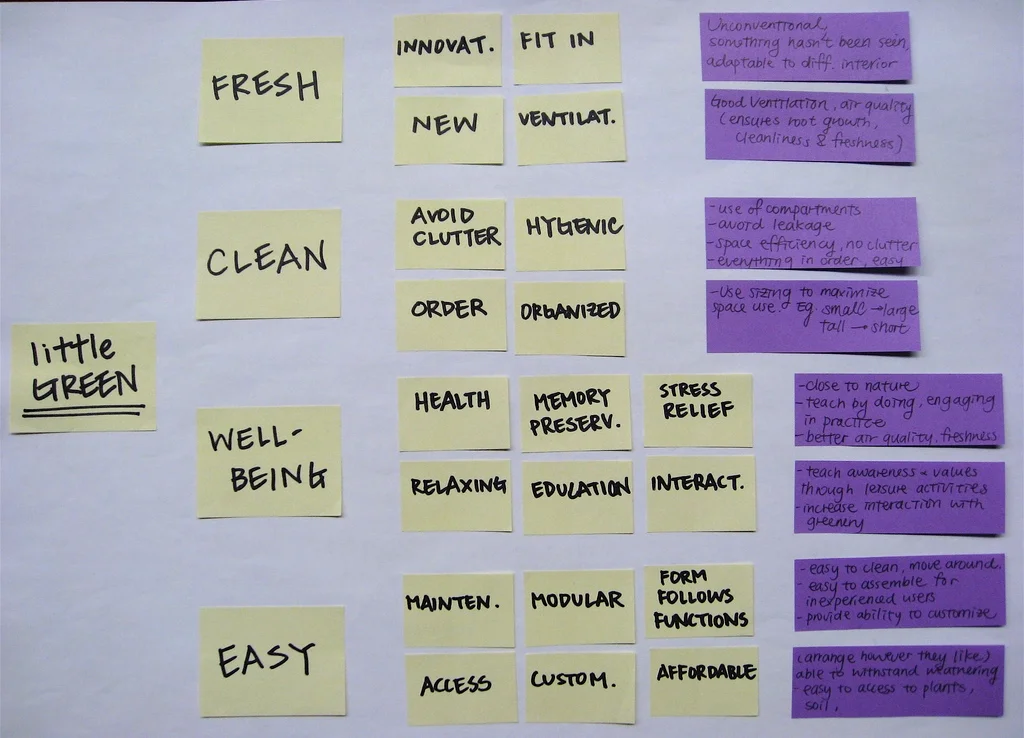 little
GREEN
FRESH
INNOVAT.
FIT IN
NEW
VENTILAT.
Unconventional,
something hasn't been seen,
adaptable to diff. interior
Good ventilation, air quality
(ensures root growth,
cleanliness & freshness)
CLEAN
AVOID
CLUTTER
HYGENIC
ORDER
ORGANIZED
-use of compartments
-avoid leakage
-space efficiency, no clutter
-everything in order, easy
-Use sizing to maximize
space use. Eg. small → large
tall → short
WELL-
BEING
HEALTH
MEMORY
PRESERV.
STRESS
RELIEF
RELAXING
EDUCATION
INTERACT.
-close to nature
-teach by doing, engaging
in practice
-better air quality, freshness
-teach awareness & values
through leisure activities
-increase interaction with
greenery
EASY
MAINTEN.
MODULAR
FORM
FOLLOWS
FUNCTIONS
ACCESS
CUSTOM.
AFFORDABLE
-easy to clean, move around.
-easy to assemble for
inexperienced users
-provide ability to customize
(arrange however they like)
able to withstand weathering
-easy to access to plants,
soil,